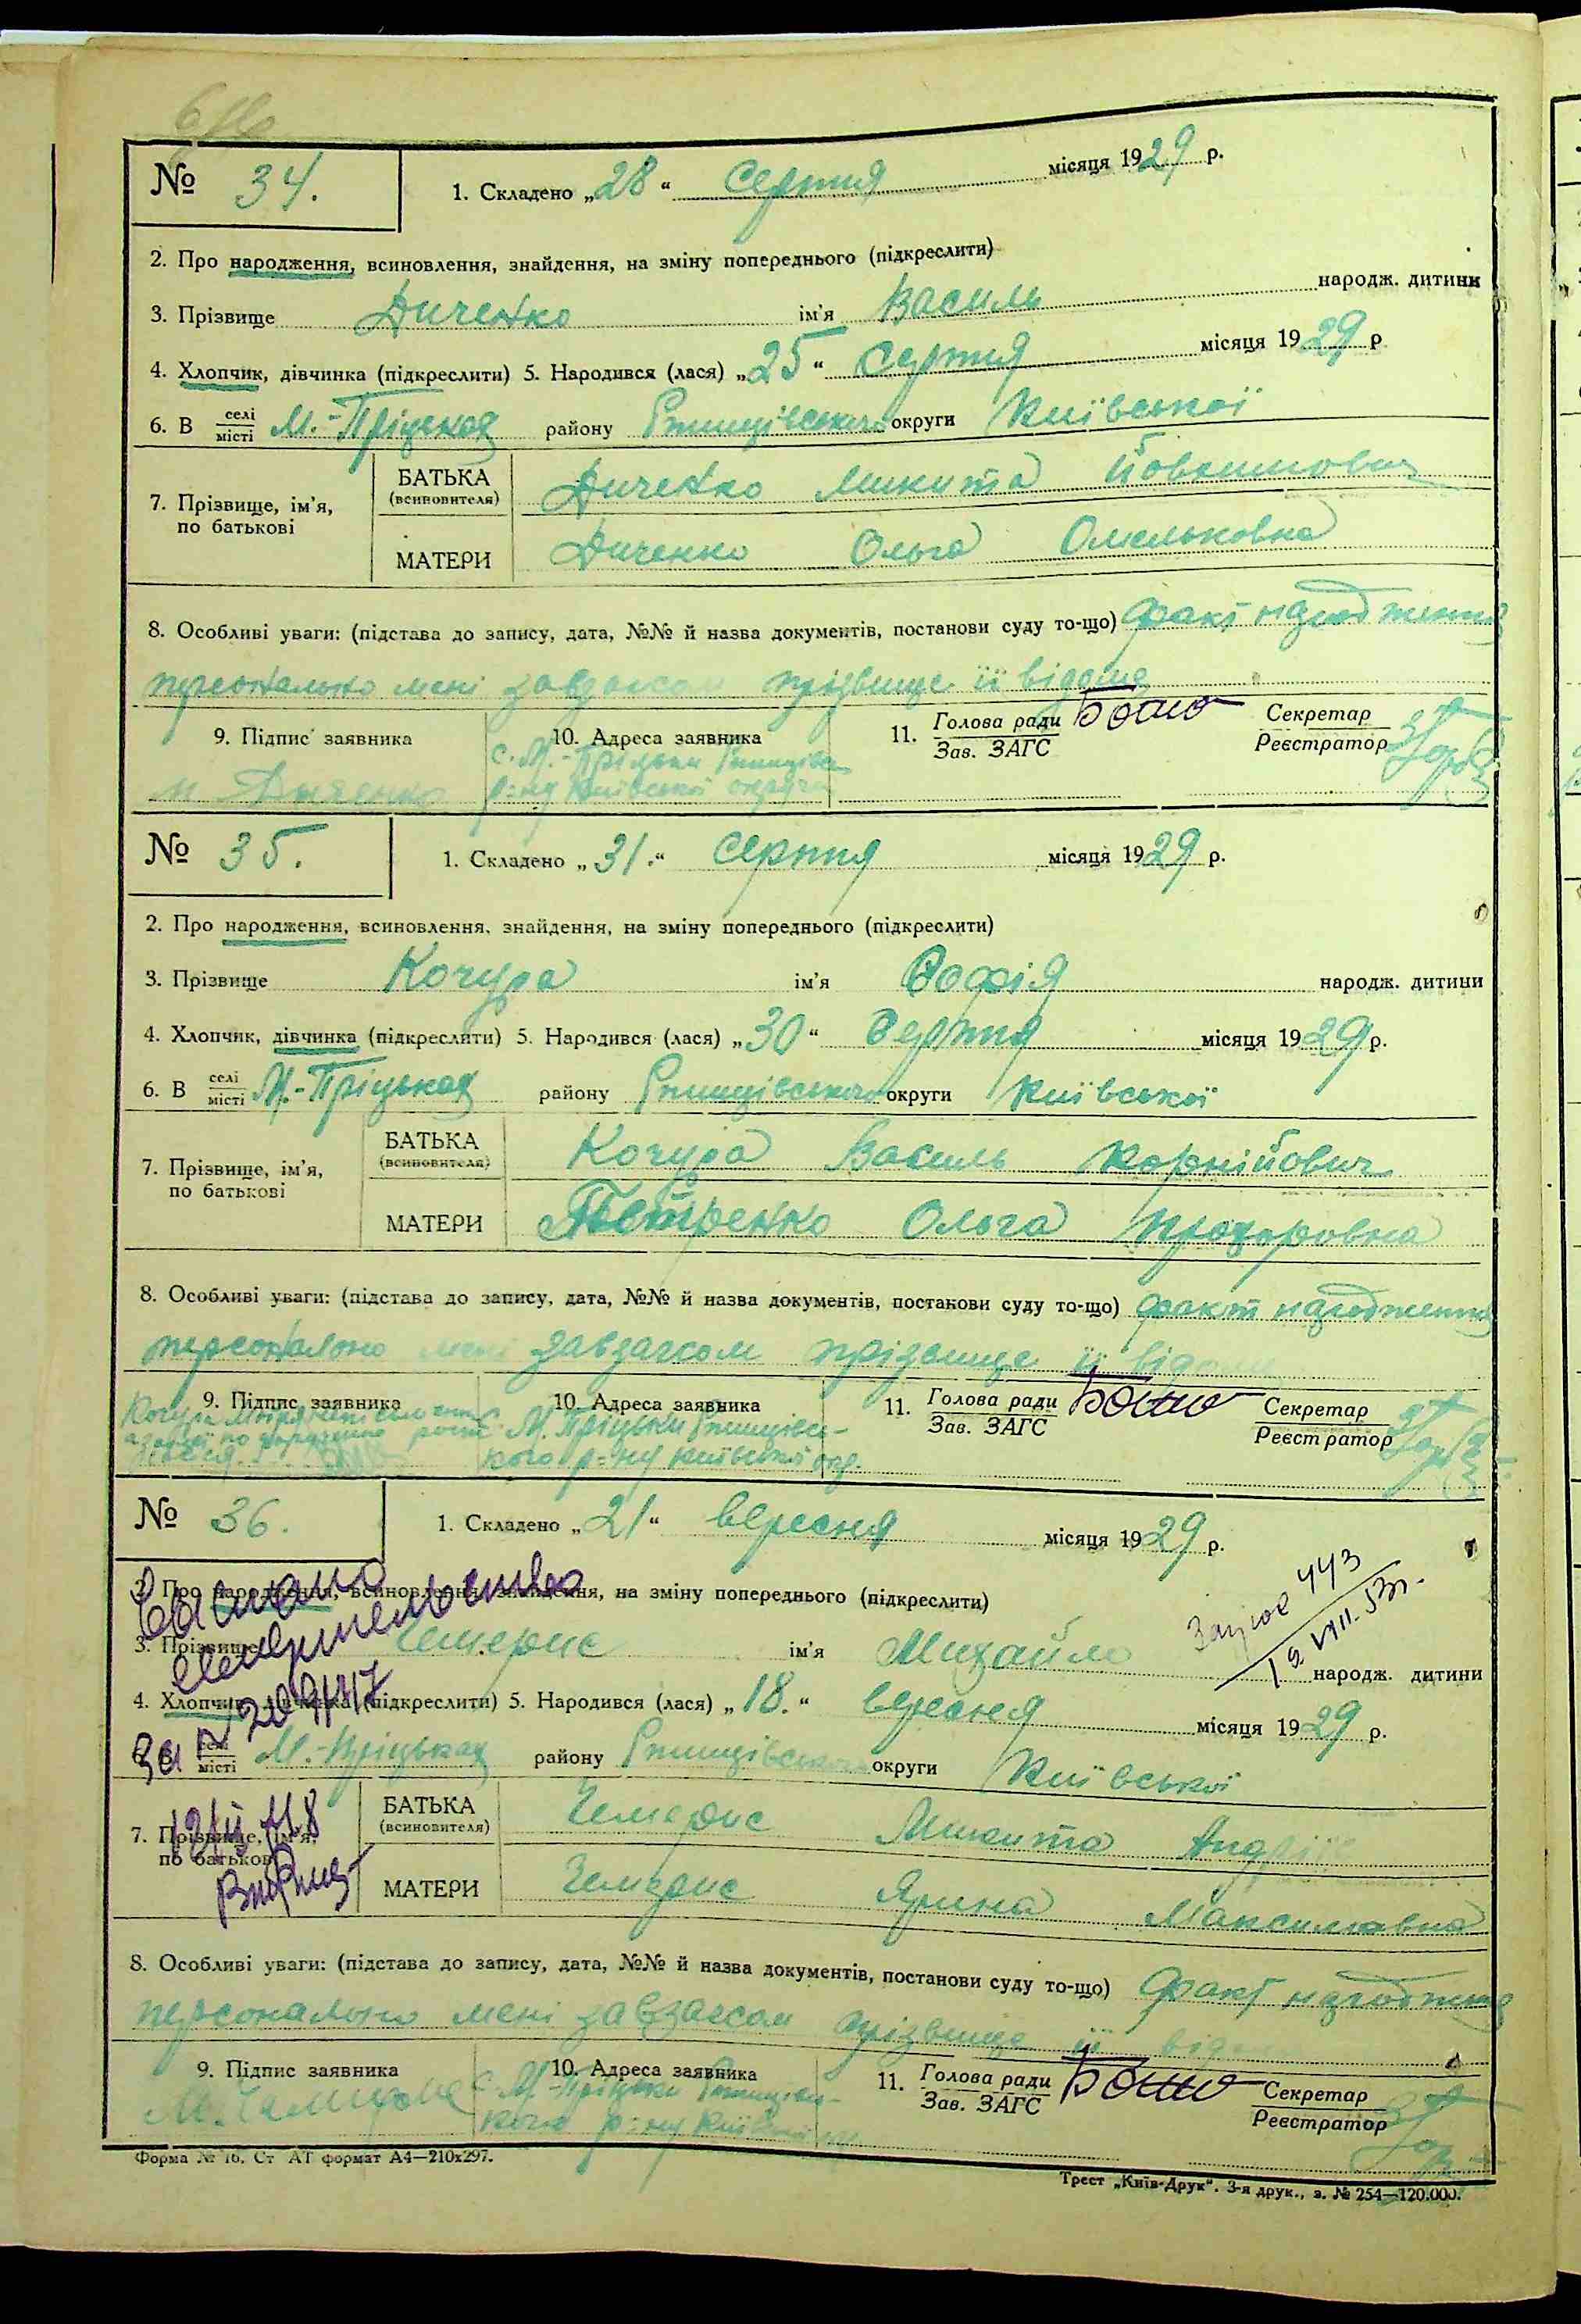 № 34.
1. Складено „28“ серпня місяця 1929 р.
2. Про народження, всиновлення, знайдення, на зміну попереднього (підкреслити)
3. Прізвище Диченко ім'я Василь народж. дитини
4. Хлопчик, дівчинка (підкреслити) 5. Народився (лася) „25“ серпня місяця 1929 р
6. В селі місті М.-Пріцьках району Ржищівського округи Київської
7. Прізвище, ім'я, по батькові
БАТЬКА (всиновителя) Диченко Микита Йовхимович
МАТЕРИ Диченко Ольга Омельковна
8. Особливі уваги: (підстава до запису, дата, №№ й назва документів, постанови суду то-що) факт народження
персонально мені завзагсом прізвище її відоме
9. Підпис заявника 10. Адреса заявника 11. Голова ради Зав. ЗАГС Секретар Реєстратор
М Диченко
с. М.-Пріцьки
р=ну Київської округи
№ 35.
1. Складено „31.“ серпня місяця 1929 р.
2. Про народження, всиновлення, знайдення, на зміну попереднього (підкреслити)
3. Прізвище Кочура ім'я Софія народж. дитини
4. Хлопчик, дівчинка (підкреслити) 5. Народився (лася) „30“ серпня місяця 1929 р.
6. В селі місті М.-Пріцьках району Ржищівського округи Київської
7. Прізвище, ім'я, по батькові
БАТЬКА (всиновителя) Кочура Василь Корнійович
МАТЕРИ Петренко Ольга Прохоровна
8. Особливі уваги: (підстава до запису, дата, №№ й назва документів, постанови суду то-що) факт народження
персонально мені завзагсом прізвище її відоме
9. Підпис заявника 10. Адреса заявника 11. Голова ради Зав. ЗАГС Секретар Реєстратор
Кочура
с. М. Пріцьки Ржищівсь-
кого р=ну Київської окр.
№ 36.
1. Складено „21“ вересня місяця 1929 р.
2. Про народження, всиновлення, знайдення, на зміну попереднього (підкреслити)
3. Прізвище Чемерис ім'я Михайло народж. дитини
4. Хлопчик, дівчинка (підкреслити) 5. Народився (лася) „18.“ вересня місяця 1929 р.
6. В селі місті М.-Пріцьках району Ржищівського округи Київської
7. Прізвище, ім'я, по батькові
БАТЬКА (всиновителя) Чемерис Микита
МАТЕРИ Чемерис Ярина Максимовна
8. Особливі уваги: (підстава до запису, дата, №№ й назва документів, постанови суду то-що) факт народження
персонально мені завзагсом прізвище її
9. Підпис заявника 10. Адреса заявника 11. Голова ради Зав. ЗАГС Секретар Реєстратор
с. М.-Пріцьки Ржищівсь-
кого р=ну
443
Форма № 16. Ст АТ формат А4—210х297.
Трест „Київ-Друк“. 3-я друк., з. № 254—120.000.